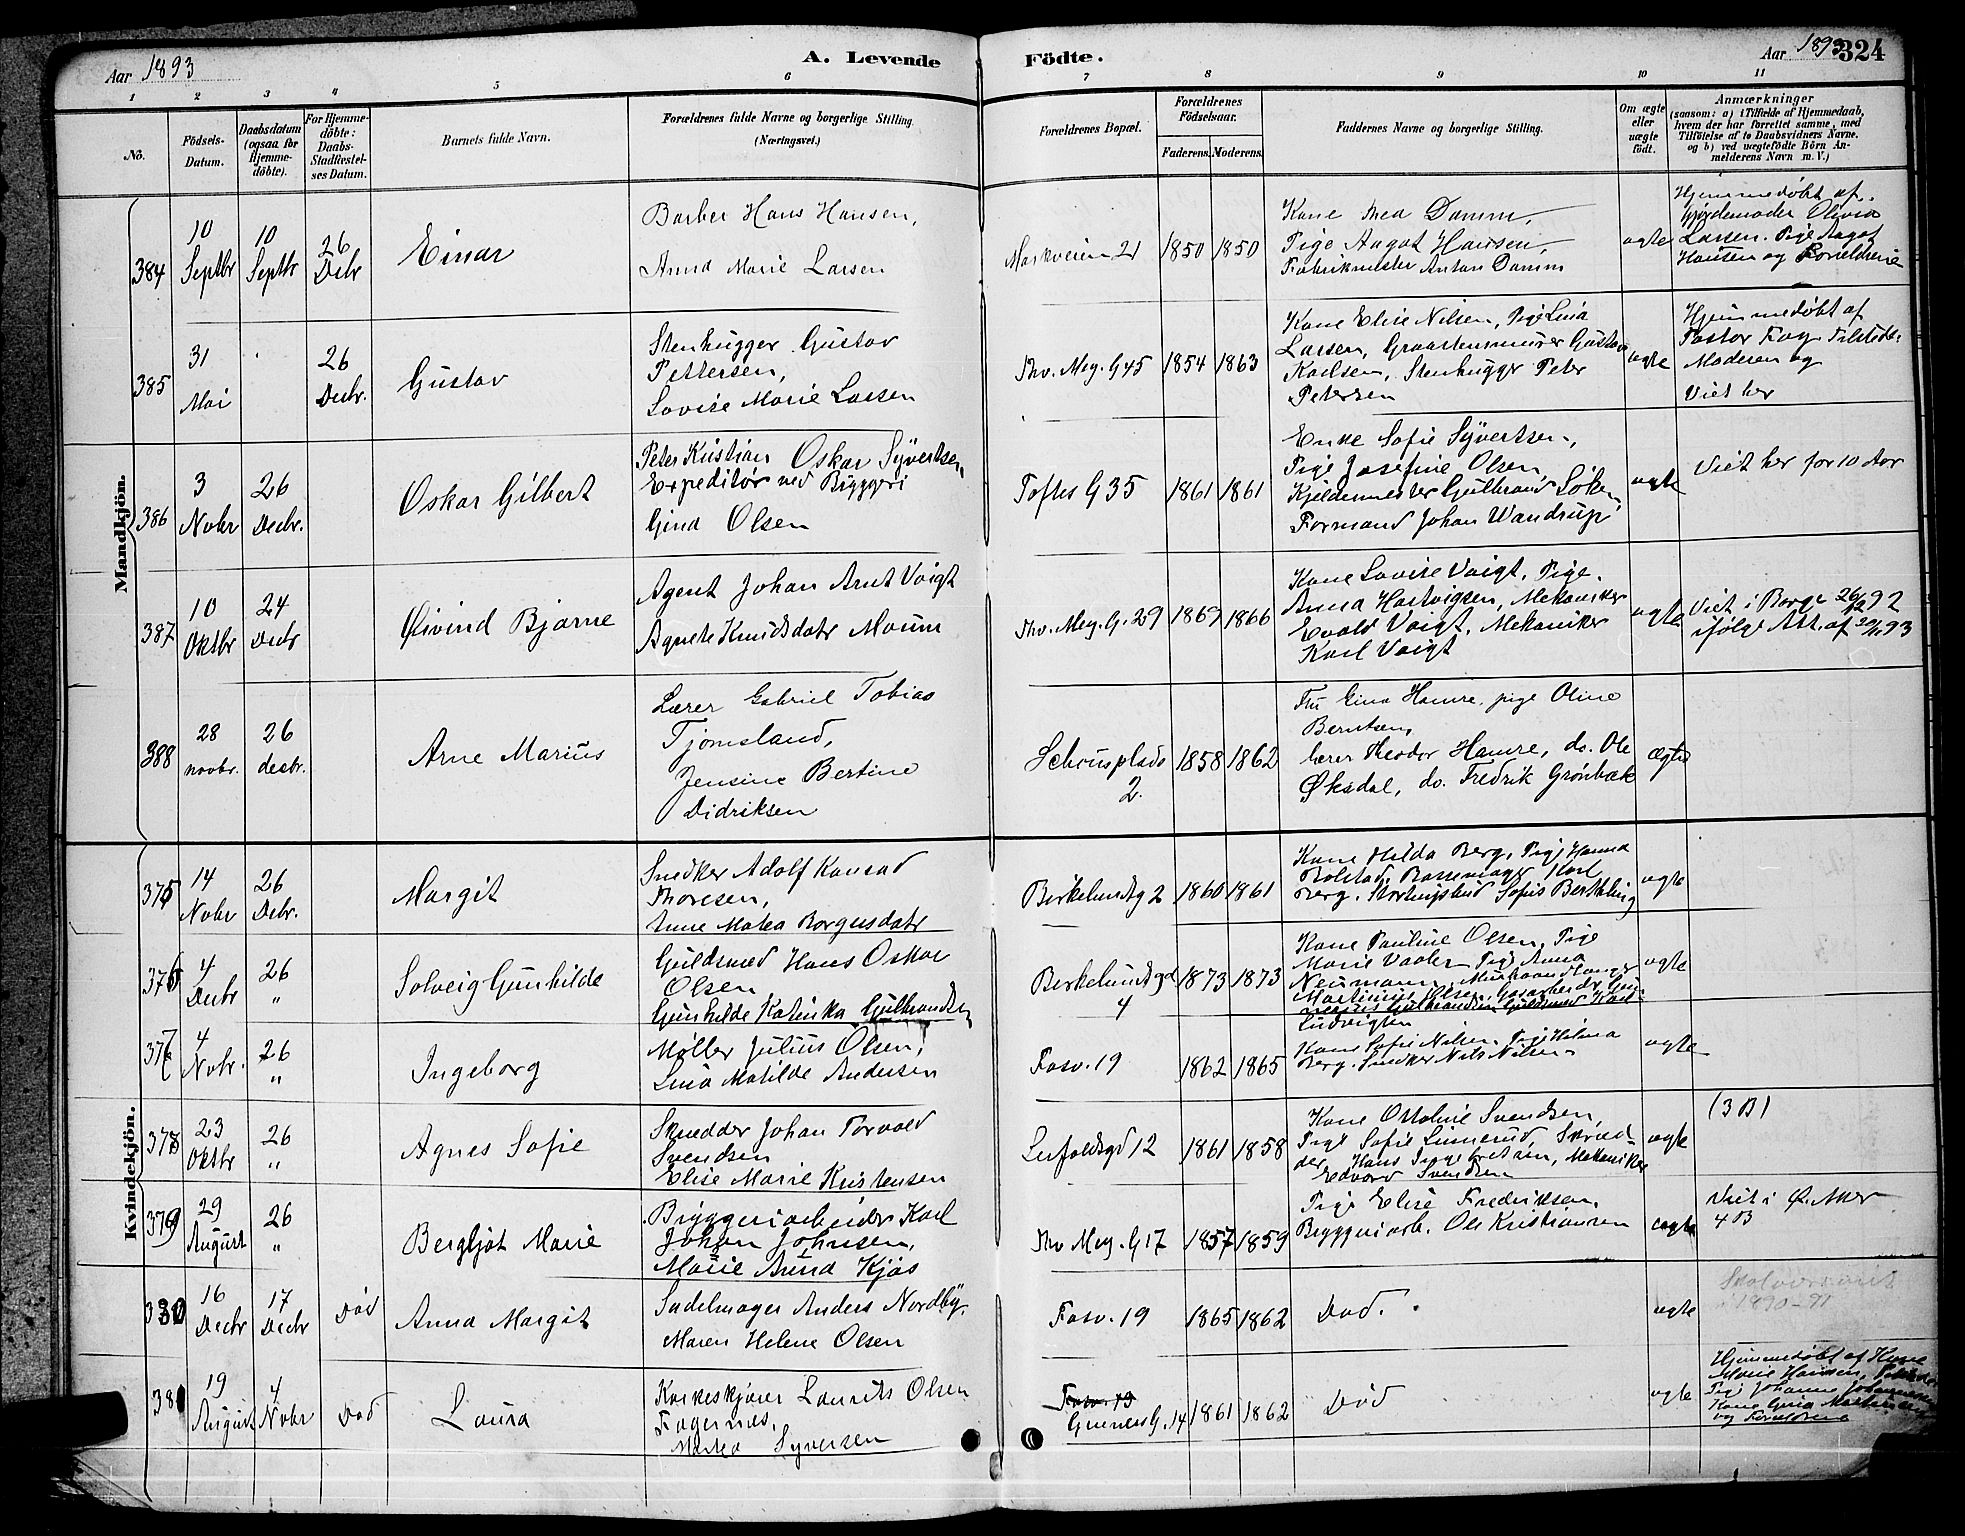 Aar 1893
A. Levende
Födte.
Aar 1893
324
1 2 3 4 5 6 7 8 9 10 11
No.
Födsels-
Datum.
Daabsdatum
(ogsaa for
Hjemme-
döbte).
For Hjemme-
döbte:
Daabs-
Stadfæstel-
ses Datum.
Barnets fulde Navn.
Forældrenes fulde Navne og borgerlige Stilling
(Næringsvei.)
Forældrenes Bopæl.
Forældrenes
Födselsaar.
Faderens. Moderens.
Faddernes Navne og borgerlige Stilling.
Om ægte
eller
uægte
födt.
Anmærkninger
(saasom: a) i Tilfælde af Hjemmedaab,
hvem der har forrettet samme, med
Tilföielse af to Daabsvidners Navne.
og b) ved uægtefödte Börn An-
melderens Navn m. V.)
Mandkjön.
384
10
Septbr
10
Septbr
26
Decbr
Einar
Barber Hans Hansen,
Anna Marie Larsen
Markveien 21
1850 1850
Kone Thea Damm,
Pige Aagot Hansen,
Fabrikmester Anton Damm
ægte
Hjemmedøbt af
Gjordemoder Olivia
Larsen. Pige Aagot
Hansen og Forældrene
385
31
Mai
26
Decbr.
Gustav
Stenhugger Gustav
Pettersen,
Lovise Marie Larsen
Thv. Mey. G 45
1854 1863
Kone Elise Nilsen, Pige Lina
Larsen, Graastensmurer Gustav
Karlsen, Stenhugger Peter
Petersen
ægte
Hjemmedøbt af
Pastor Fog Tilstede:
Moderen og
Viet her
386
3
Novbr
26
Decbr.
Oskar Gilbert
Peter Kristian Oskar Syvertsen,
Expeditør ved Byggeri
Gina Olsen
Toftes G 35
1861 1861
Enke Sofie Syvertsen,
Pige Josefine Olsen,
Kjeldermester Gulbrand Løken,
Formand Johan Wandrup
ægte
Viet her for 10 Aar
387
10
Oktbr
24
Decbr
Øivind Bjarne
Agent Johan Arnt Voigt
Agnete Knudsdatr Moum
Thv. Mey. G. 29
1869 1866
Kone Lovise Voigt, Pige
Anna Hartvigsen, Mekaniker
Evald Voigt, Mekaniker
Karl Voigt
ægte
Viet i Borge 26/12 92
ifølge Att. af 20/11 93
388
28
novbr.
26
decbr.
Arne Marius
Lærer Gabriel Tobias
Tjomsland,
Jensine Bertine
Didriksen
Schousplads
2.
1858 1862
Fru Gina Hamre, pige Oline
Berntsen,
lærer Theodor Hamre, do. Ole
Øksdal, do. Fredrik Grønbæk
ægte
Kvindekjön.
375
14
Novbr
26
Decbr.
Margit
Snedker Adolf Konrad
Thoresen,
Anne Mathea Borgersdatr
Birkelundsg 2
1860 1861
Kone Hilda Berg, Pige Hanna
Rolstad,
ægte
376
4
Decbr
26
"
Solveig Gunhilde
Guldsmed Hans Oskar
Olsen
Gunhilde Katinka Gulbrandsen
Birkelundsgd
4
1873 1873
Kone Pauline Olsen, Pige
Marie Vaaler, Pige Anna
Neumann,
Martinius Olsen,
Ludvigsen
ægte
377
4
Novbr.
26
"
Ingeborg
Møller Julius Olsen,
Lina Matilde Andersen
Fosv. 19
1862 1865
Kone Sofie Nilsen, Pige Helma
Berg, Snedker Nils Nilsen
ægte
378
23
Oktbr
26
"
Agnes Sofie
Skrædder Johan Torvald
Svendsen
Elise Marie Kristensen
Leirfaldsgd 12
1861 1858
Kone Ottoline Svendsen,
Pige Sofie Linnerud, Skræd-
der Hans Ingebretsen, Mekaniker
Edvard Svendsen
ægte
(3 B)
379
29
August
26
"
Bergljot Marie
Bryggeriarbeider Karl
Johan Johnsen,
Marie Anna Kjos
Thv Mey. G 17
1857 1859
Pige Elise Fredriksen,
Bryggeriarb. Ole Kristiansen
ægte
Viet i Ø. Aker
4 B
380
16
Decbr
17
Decbr
Død
Anna Margit
Sadelmager Anders Nordby,
Maren Helene Olsen
Fosv. 19
1865 1862
Død.
ægte
1890-91
381
19
August
4
Novbr
Død
Laura
Korkeskjærer Laurits Olsen
Fagernes,
Mathea Syversen
Fosv. 19
Grüners G. 14
1861 1862
Død
ægte
Hjemmedøbt af Kone
Marie Hansen,
Pige Johanne Johannesen
Kone Gina
og Forældrene